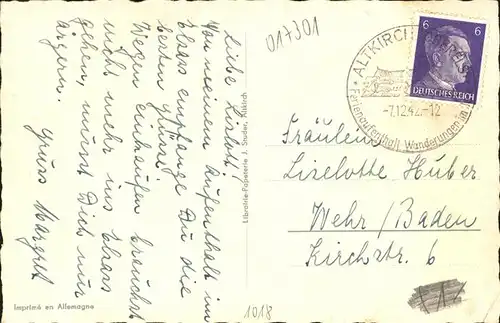 017301
Liebe Liselott!
Von meinem Aufenthalt im
Elsass empfange Du die
besten Grüsse.
Wegen Einkaufen brauchst
nicht mehr ins Elsass
gehen, musst Dich nur
ärgern.
Gruss Margret
Imprimé en Allemagne
Librairie-Papeterie J. Studer, Altkirch
1018
ALTKIRCH
Ferienaufenthalt Wanderungen
-7.12.42.-12
6 6
DEUTSCHES REICH
Fräulein
Liselotte Huber
Wehr/Baden
Kirchstr. 6